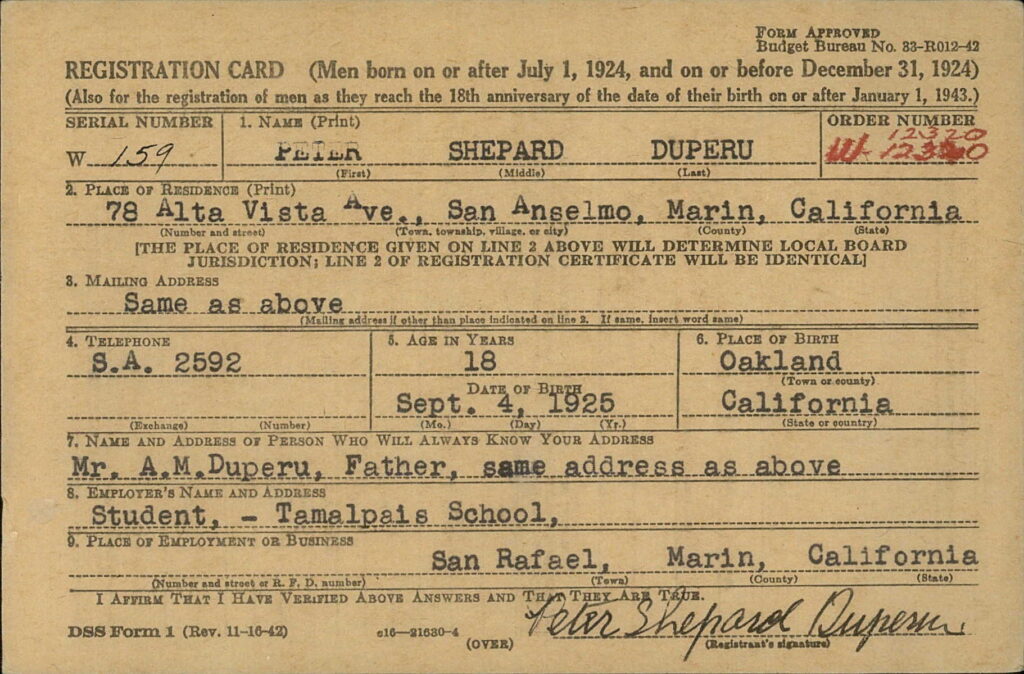 FORM APPROVED
Budget Bureau No. 33-R012-42
REGISTRATION CARD (Men born on or after July 1, 1924, and on or before December 31, 1924)
(Also for the registration of men as they reach the 18th anniversary of the date of their birth on or after January 1, 1943.)
SERIAL NUMBER 1. NAME (Print) ORDER NUMBER
12320
W 159 PETER SHEPARD DUPERU W
(First) (Middle) (Last)
2. PLACE OF RESIDENCE (Print)
78 Alta Vista Ave., San Anselmo, Marin, California
(Number and street) (Town, township, village, or city) (County) (State)
[THE PLACE OF RESIDENCE GIVEN ON LINE 2 ABOVE WILL DETERMINE LOCAL BOARD
JURISDICTION; LINE 2 OF REGISTRATION CERTIFICATE WILL BE IDENTICAL]
3. MAILING ADDRESS
Same as above
(Mailing address if other than place indicated on line 2. If same, insert word same)
4. TELEPHONE 5. AGE IN YEARS 6. PLACE OF BIRTH
S.A. 2592 18 Oakland
(Town or county)
DATE OF BIRTH
Sept. 4, 1925 California
(Exchange) (Number) (Mo.) (Day) (Yr.) (State or country)
7. NAME AND ADDRESS OF PERSON WHO WILL ALWAYS KNOW YOUR ADDRESS
Mr. A.M.Duperu, Father, same address as above
8. EMPLOYER'S NAME AND ADDRESS
Student, - Tamalpais School,
9. PLACE OF EMPLOYMENT OR BUSINESS
San Rafael, Marin, California
(Number and street or R. F. D. number) (Town) (County) (State)
I AFFIRM THAT I HAVE VERIFIED ABOVE ANSWERS AND THAT THEY ARE TRUE.
Peter Shepard Duperu
DSS Form 1 (Rev. 11-16-42) c16—21630-4 (Registrant's signature)
(OVER)